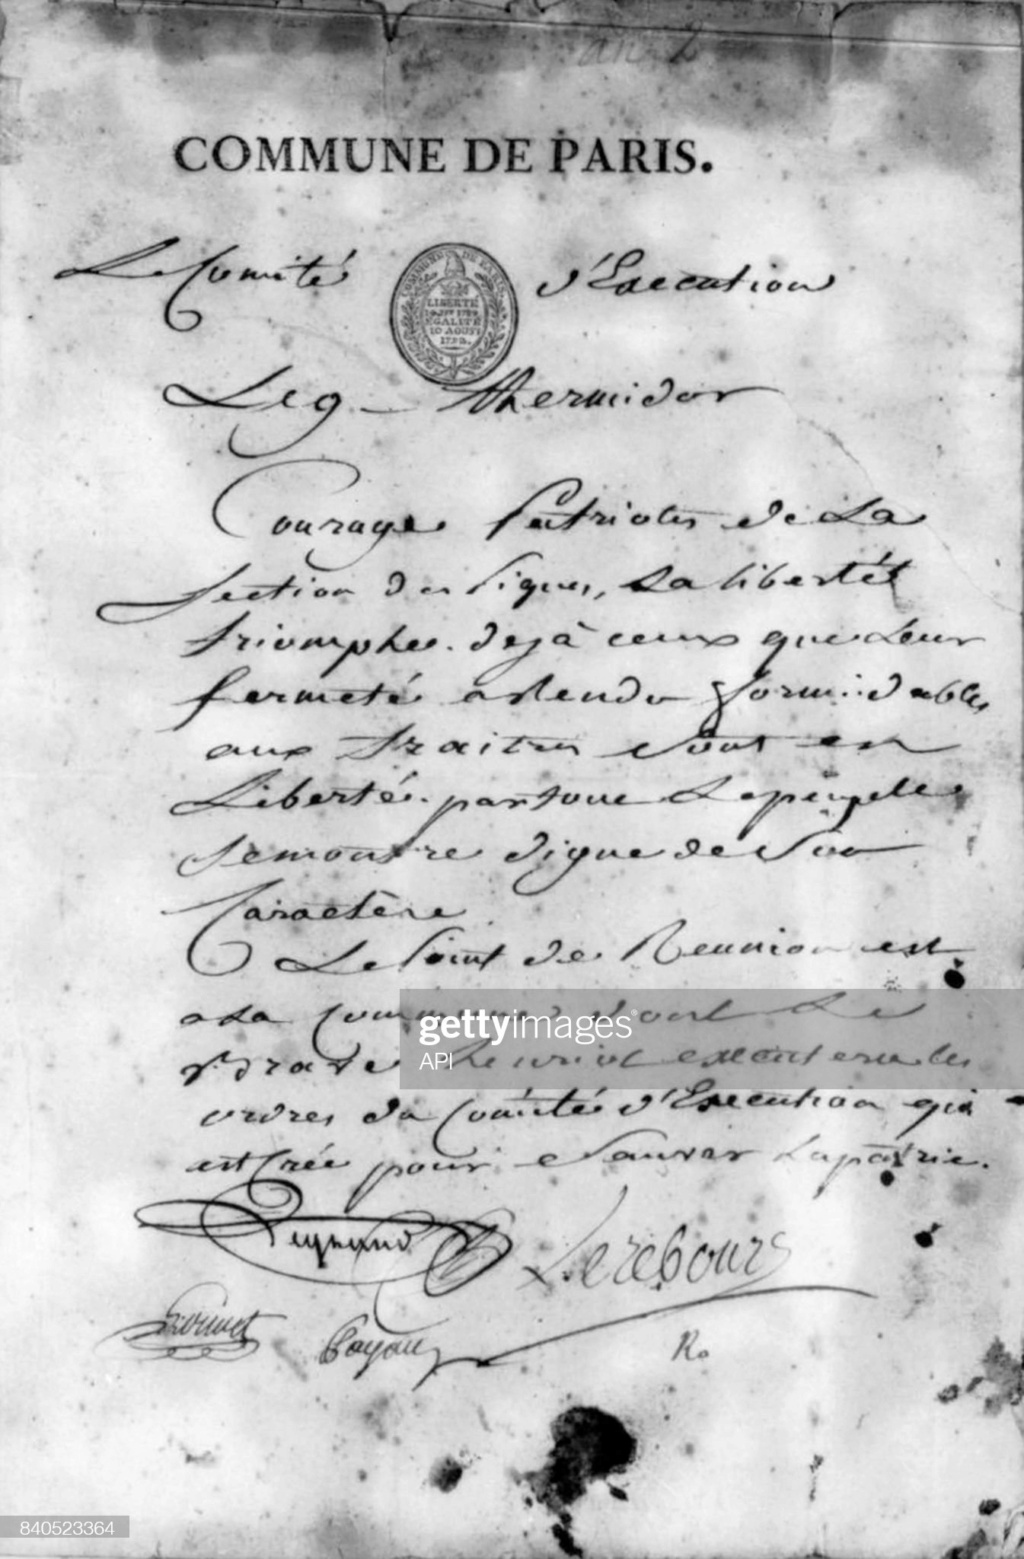 an 2
COMMUNE DE PARIS.
Le Comité d'Execution
COMMUNE DE PARIS
LIBERTÉ
EGALITÉ
10 AOUST
1792.
Le 9 - thermidor
Courage Patriotes de La
Section des Piques, La liberté
triomphe. dejà ceux que Leur
fermeté a Rendu formidables
aux traitres Sont en
Liberté. partout Le peuple
se montre digne de Son
Caractère
Le Point de Reunion est
a La Commune dont Le
brave henriot executera les
ordres du Comité d'Execution qui
est Crée pour Sauver La patrie.
Legrand Lerebours
Payan Ro
gettyimages®
API
840523364